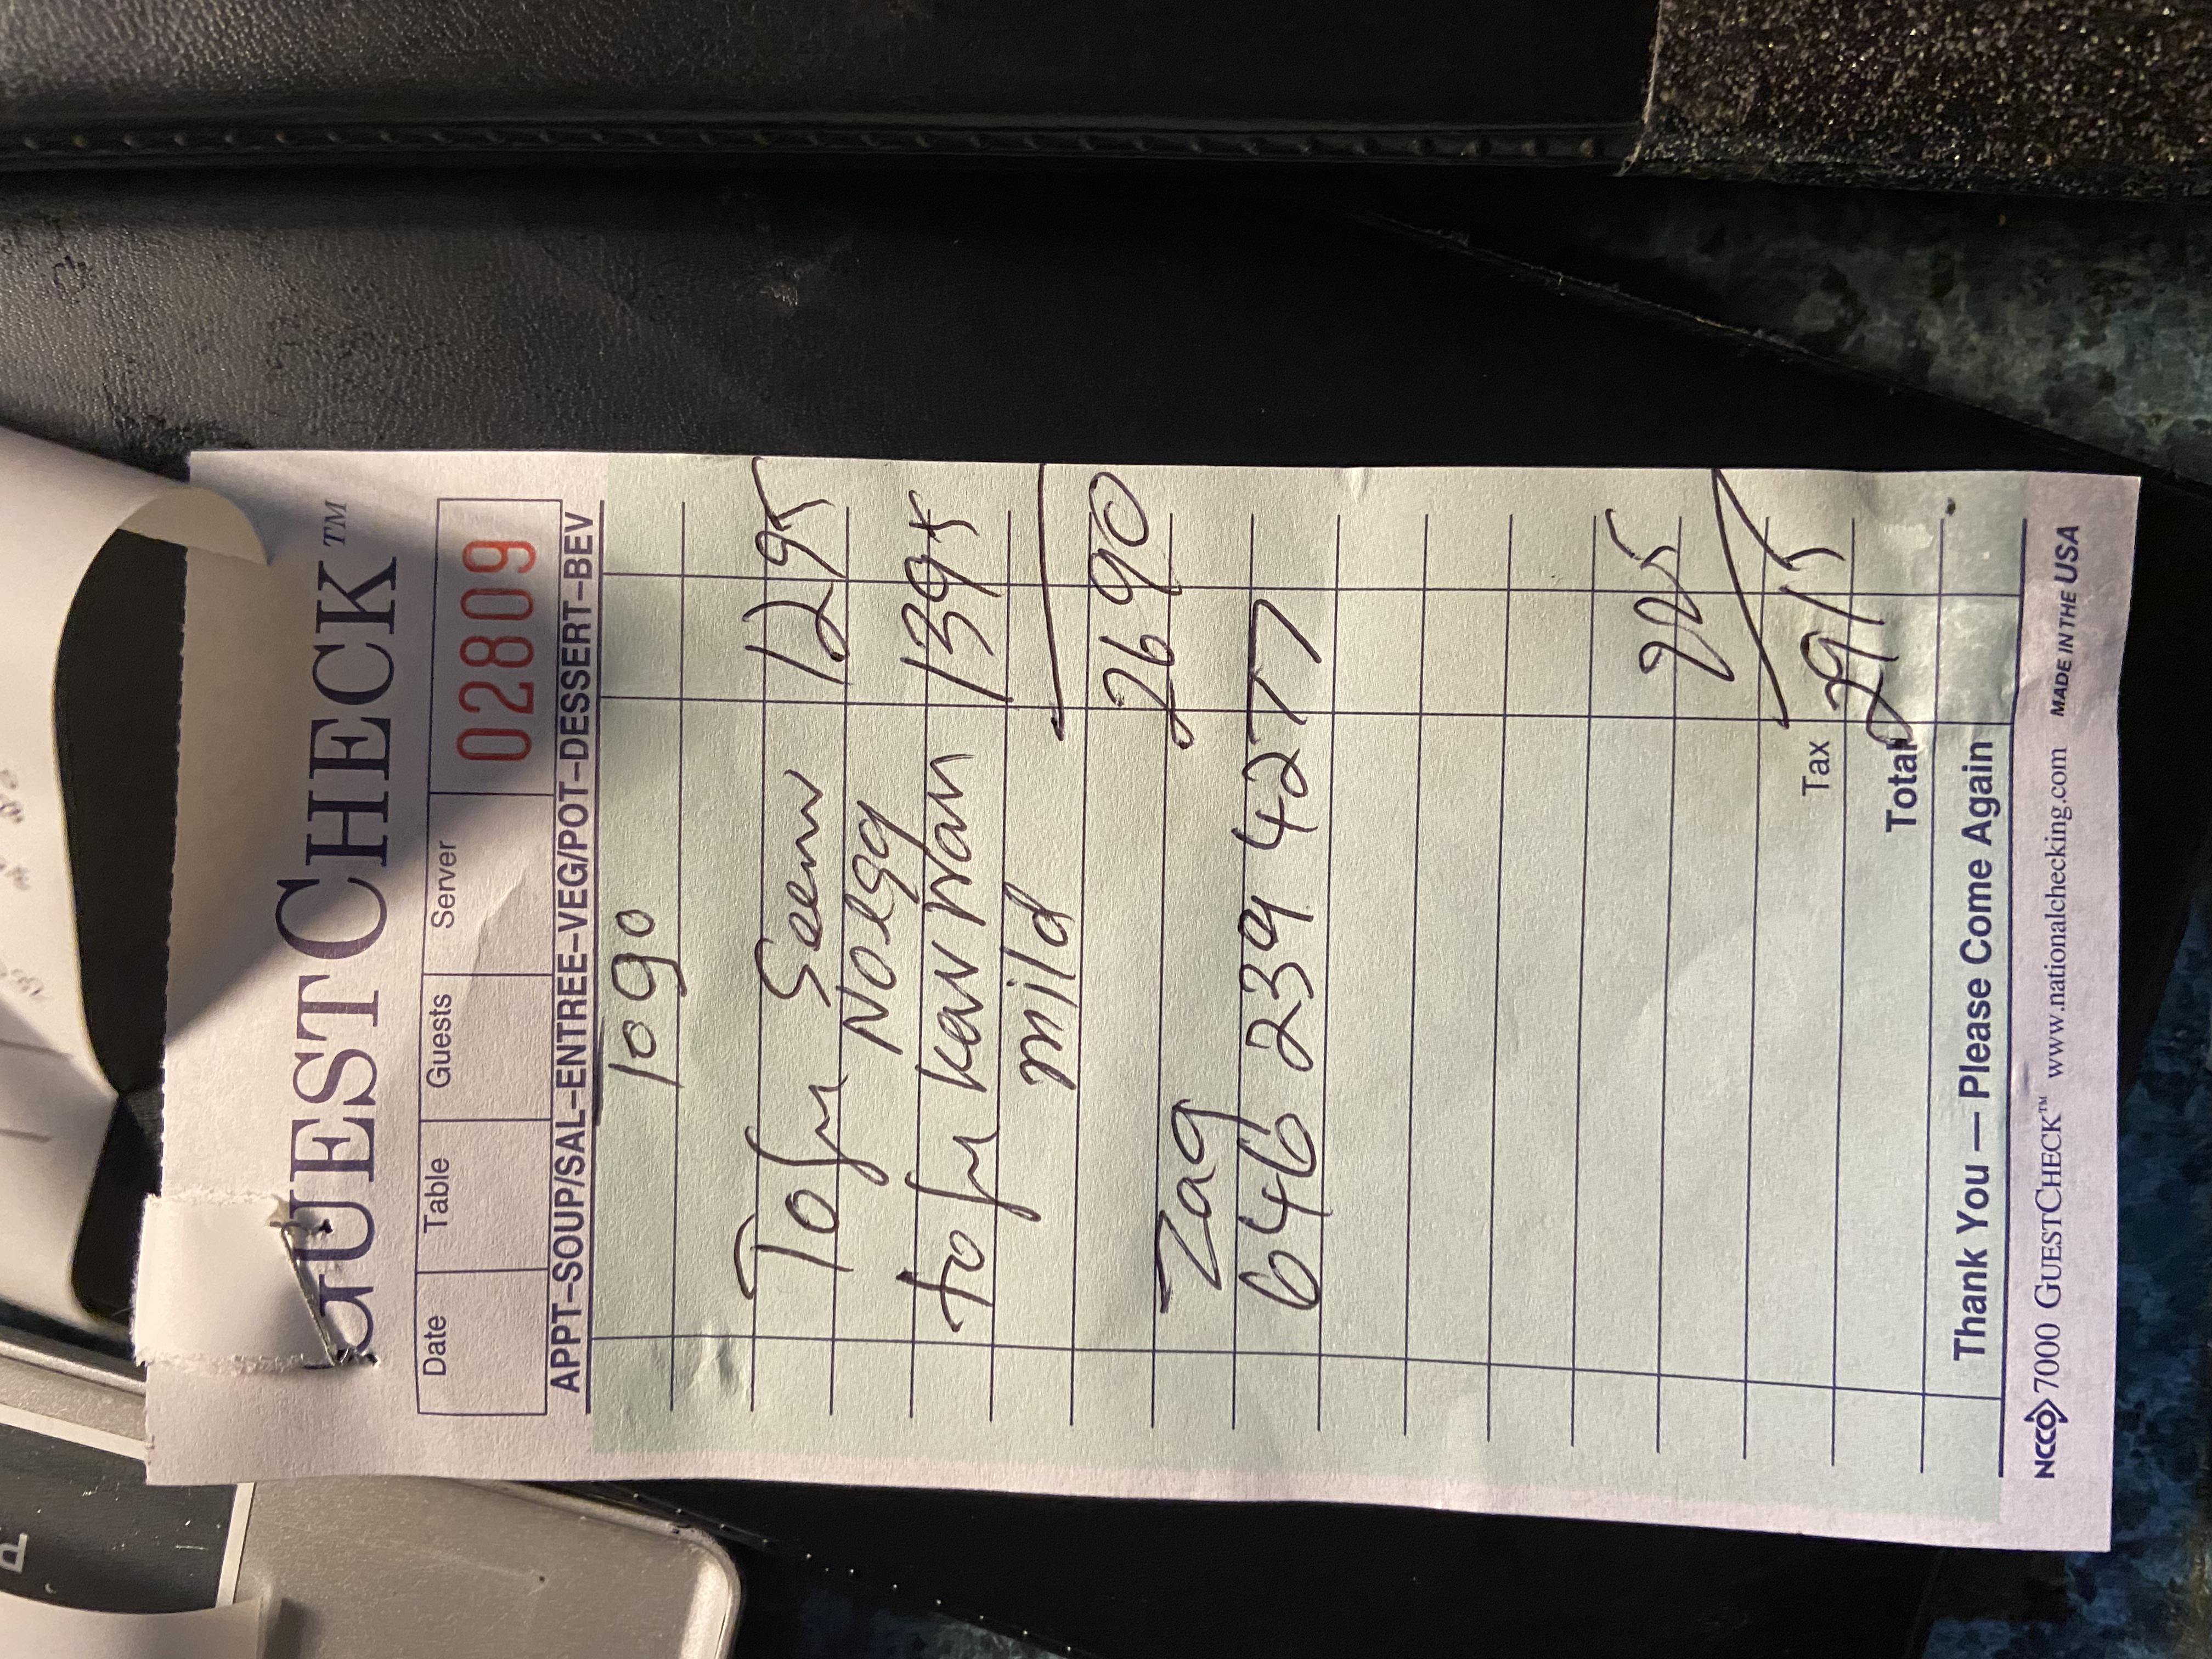 P
GUESTCHECK™
Date Table Guests Server 02809
APPT–SOUP/SAL–ENTREE–VEG/POT–DESSERT–BEV
To go
Tofu Seew 12 95
No egg
tofu kaw wan 13 95
mild
26 90
Zag
646 239 4277
2 25
Tax
29 15
Total
Thank You — Please Come Again
NCCO 7000 GUESTCHECK™ www.nationalchecking.com MADE IN THE USA